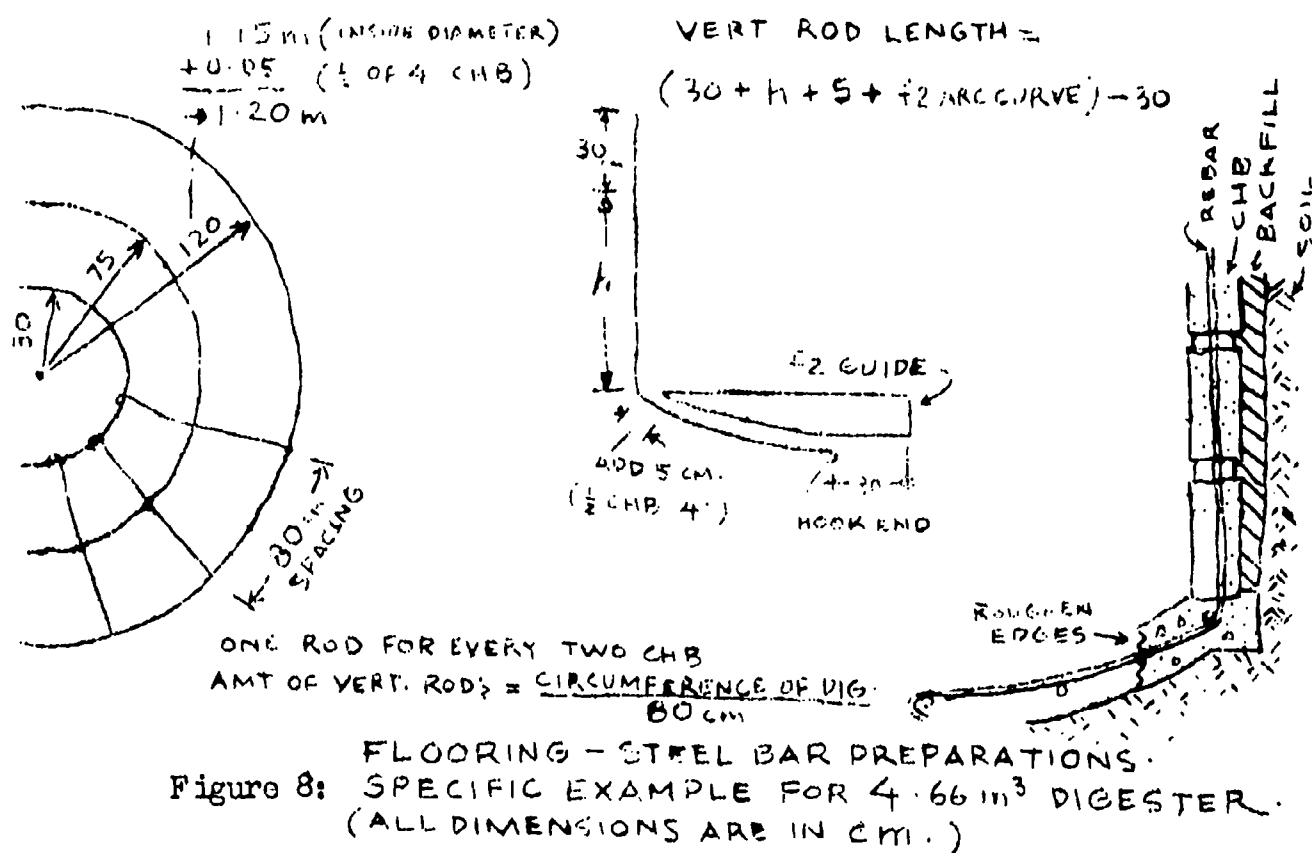 1.15 m (INSIDE DIAMETER)
+0.05 (½ OF 4 CHB)
1.20 m
30
75
120
80 cm
SPACING
VERT ROD LENGTH =
(30 + h + 5 + f2 ARC CURVE) - 30
30
h
f2 GUIDE
ADD 5 CM.
(½ CHB 4")
30
HOOK END
REBAR
CHB
BACKFILL
SOIL
ROUGHEN
EDGES
ONE ROD FOR EVERY TWO CHB
AMT OF VERT. RODS = CIRCUMFERENCE OF DIG.
80 cm
FLOORING - STEEL BAR PREPARATIONS.
Figure 8: SPECIFIC EXAMPLE FOR 4.66 m³ DIGESTER.
(ALL DIMENSIONS ARE IN CM.)